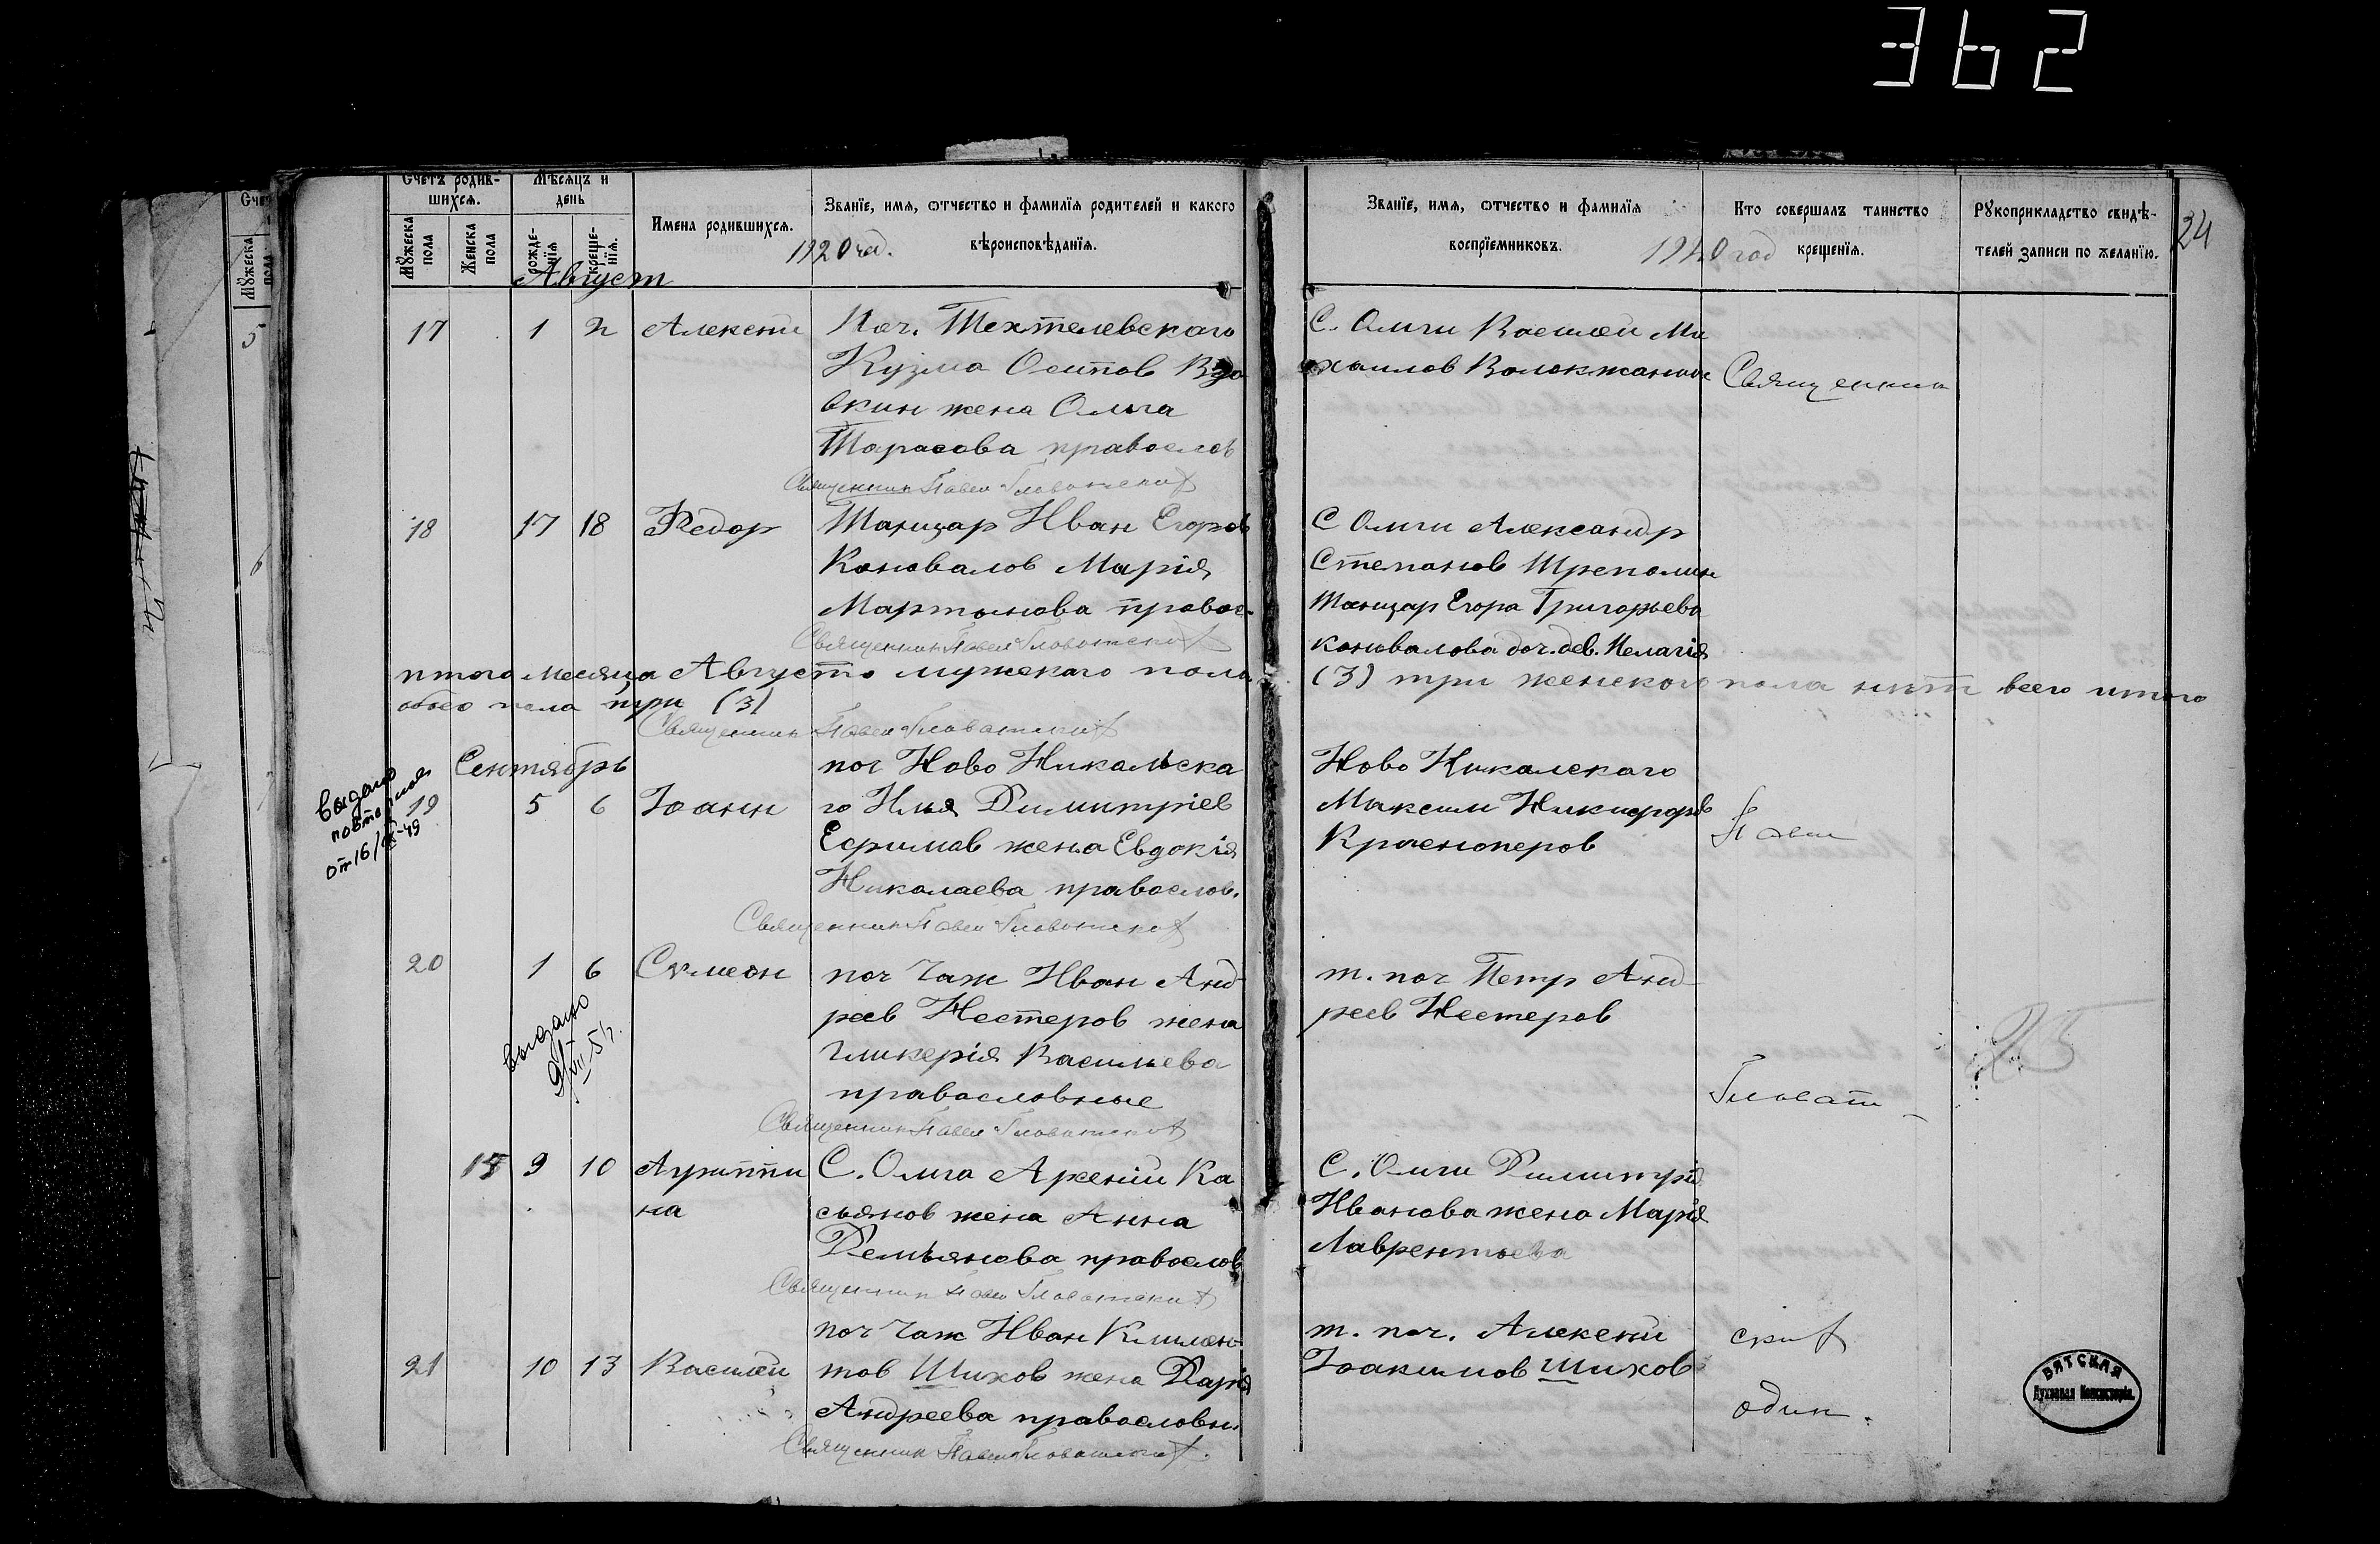 362
Счетъ родив-
шихся.
Мѣсяцъ и
день
Мужеска
пола
Женска
пола
рожде-
нія
креще-
нія.
Имена родившихся.
Званїе, имя, отчество и фамилїя родителей и какого
вѣроисповѣданїя.
1920 год.
Званїе, имя, отчество и фамилїя
воспрїемниковъ.
1920 год
Кто совершалъ таинство
крещенїя.
Рукоприкладство свидѣ-
телей записи по желанїю.
24
Август
17 1 2 Алексей Поч. Техтелевскаго
Кузма Осипов Вдо
вкин жена Ольга
Тарасова православ
Священник Павел Гловатский
С. Ольги Василей Ми
хаилов Волокжанин
Священник
18 17 18 Федор Танцар Иван Егоров
Коновалов Марія
Мартынова правос-
Священник Павел Гловатский
С Ольги Александр
Степанов
Танцар Егора Григорьева
коновалова доч. дев. Пелагія
итого месяца Августа мужескаго пола (3) три женского пола нет всего итого
обоего пола три (3)
Священник Павел Гловатский
Сентябрь
выдано
повторное
от 16/ -49
19 5 6 Іоанн
поч Ново Никальска
го Илья Димитріев
Ефримов жена Евдокія
Николаева православ.
Священник Павел Гловатский
Ново Никалскаго
Максим Никифоров
Красноперов
Павел
20 1 6 Симеон поч Чаж Иван Анд
реев Нестеров жена
Гликерія Васильева
православные
Священник Павел Гловатский
т. поч Петр Анд-
реев Нестеров
Гловат-
выдано
9/VII-51.
25
15 9 10 Агриппи
на
С. Ольга Арсеній Ка
сьянов жена Анна
Демьянова православ
Священник Павел Гловатский
С. Ольги Димитрія
Иванова жена Марія
Лаврентьева
21 10 13 Василей
поч Чаж Иван Климен-
тов Шихов жена Дарія
Андреева православн.
Священник Павел Гловатский.
т. поч. Алексей
Іоакимов Шихов
ский
один.
ВЯТСКАЯ
Духовная Консисторія.